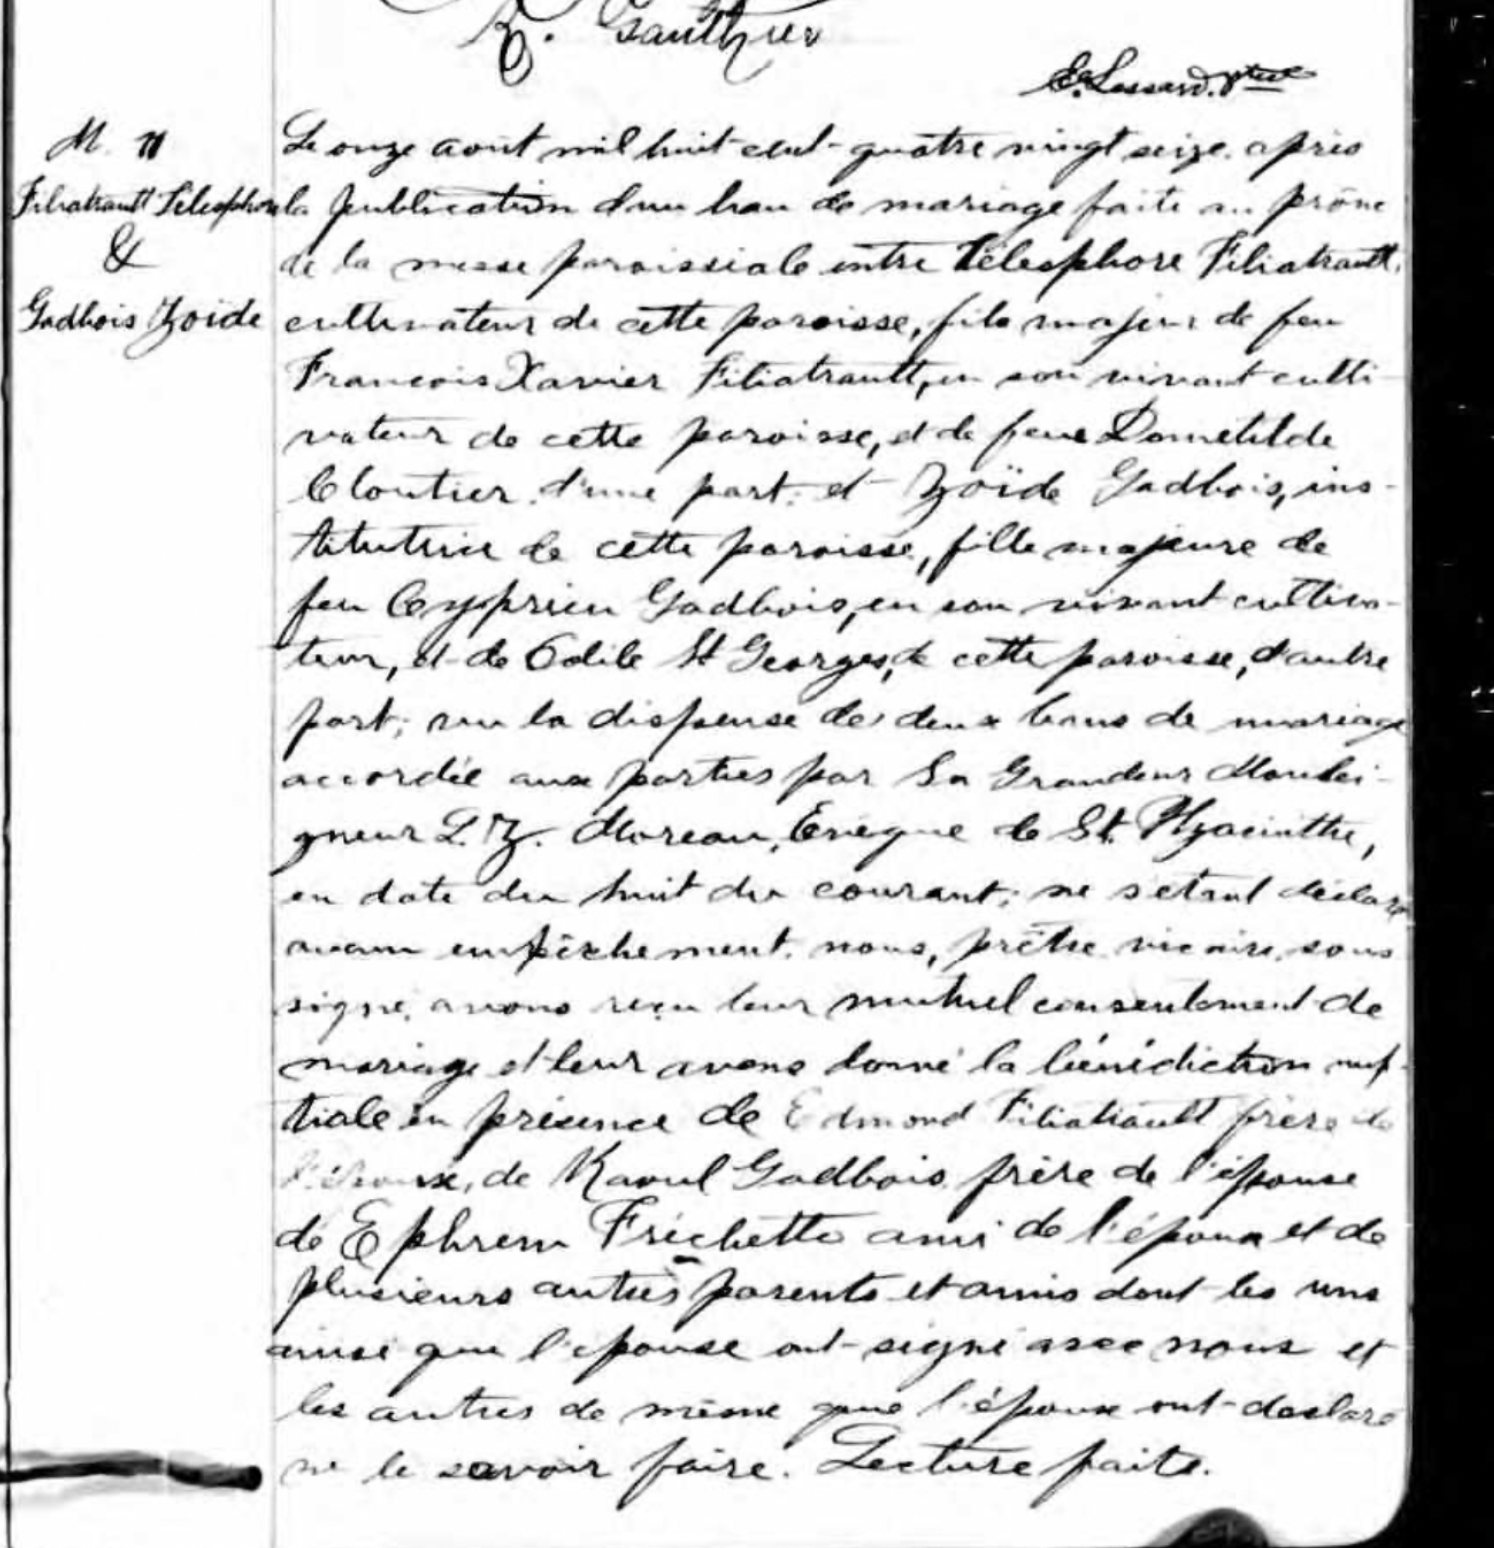 R. Gauthier
E. Lessard. Ptre
M. 11
Filiatrault Télesphore
&
Gadbois Zoïde
Le onze août mil huit-cent-quatre vingt seize, après
la publication d'un ban de mariage faite au prône
de la messe paroissiale entre Télesphore Filiatrault,
cultivateur de cette paroisse, fils majeur de feu
Francois Xavier Filiatrault, en son vivant culti-
vateur de cette paroisse, et de feue Dometilde
Cloutier, d'une part; et Zoïde Gadbois, ins-
titutrice de cette paroisse, fille majeure de
feu Cyprien Gadbois, en son vivant cultiva-
teur, et de Odile St Georges, de cette paroisse, d'autre
part; vu la dispense de deux bans de mariage
accordée aux parties par Sa Grandeur Monsei-
gneur L. Z. Moreau, Evêque de St. Hyacinthe,
en date du huit du courant; ne s'étant déclaré
aucun empêchement, nous, prêtre vicaire, sous
signé, avons reçu leur mutuel consentement de
mariage et leur avons donné la bénédiction nup-
tiale en présence de Edmond Filiatrault frère de
l'époux, de Raoul Gadbois frère de l'épouse
de Ephrem Fréchette ami de l'époux et de
plusieurs autres parents et amis dont les uns
ainsi que l'épouse ont signé avec nous et
les autres de même que l'époux ont declaré
ne le savoir faire. Lecture faite.